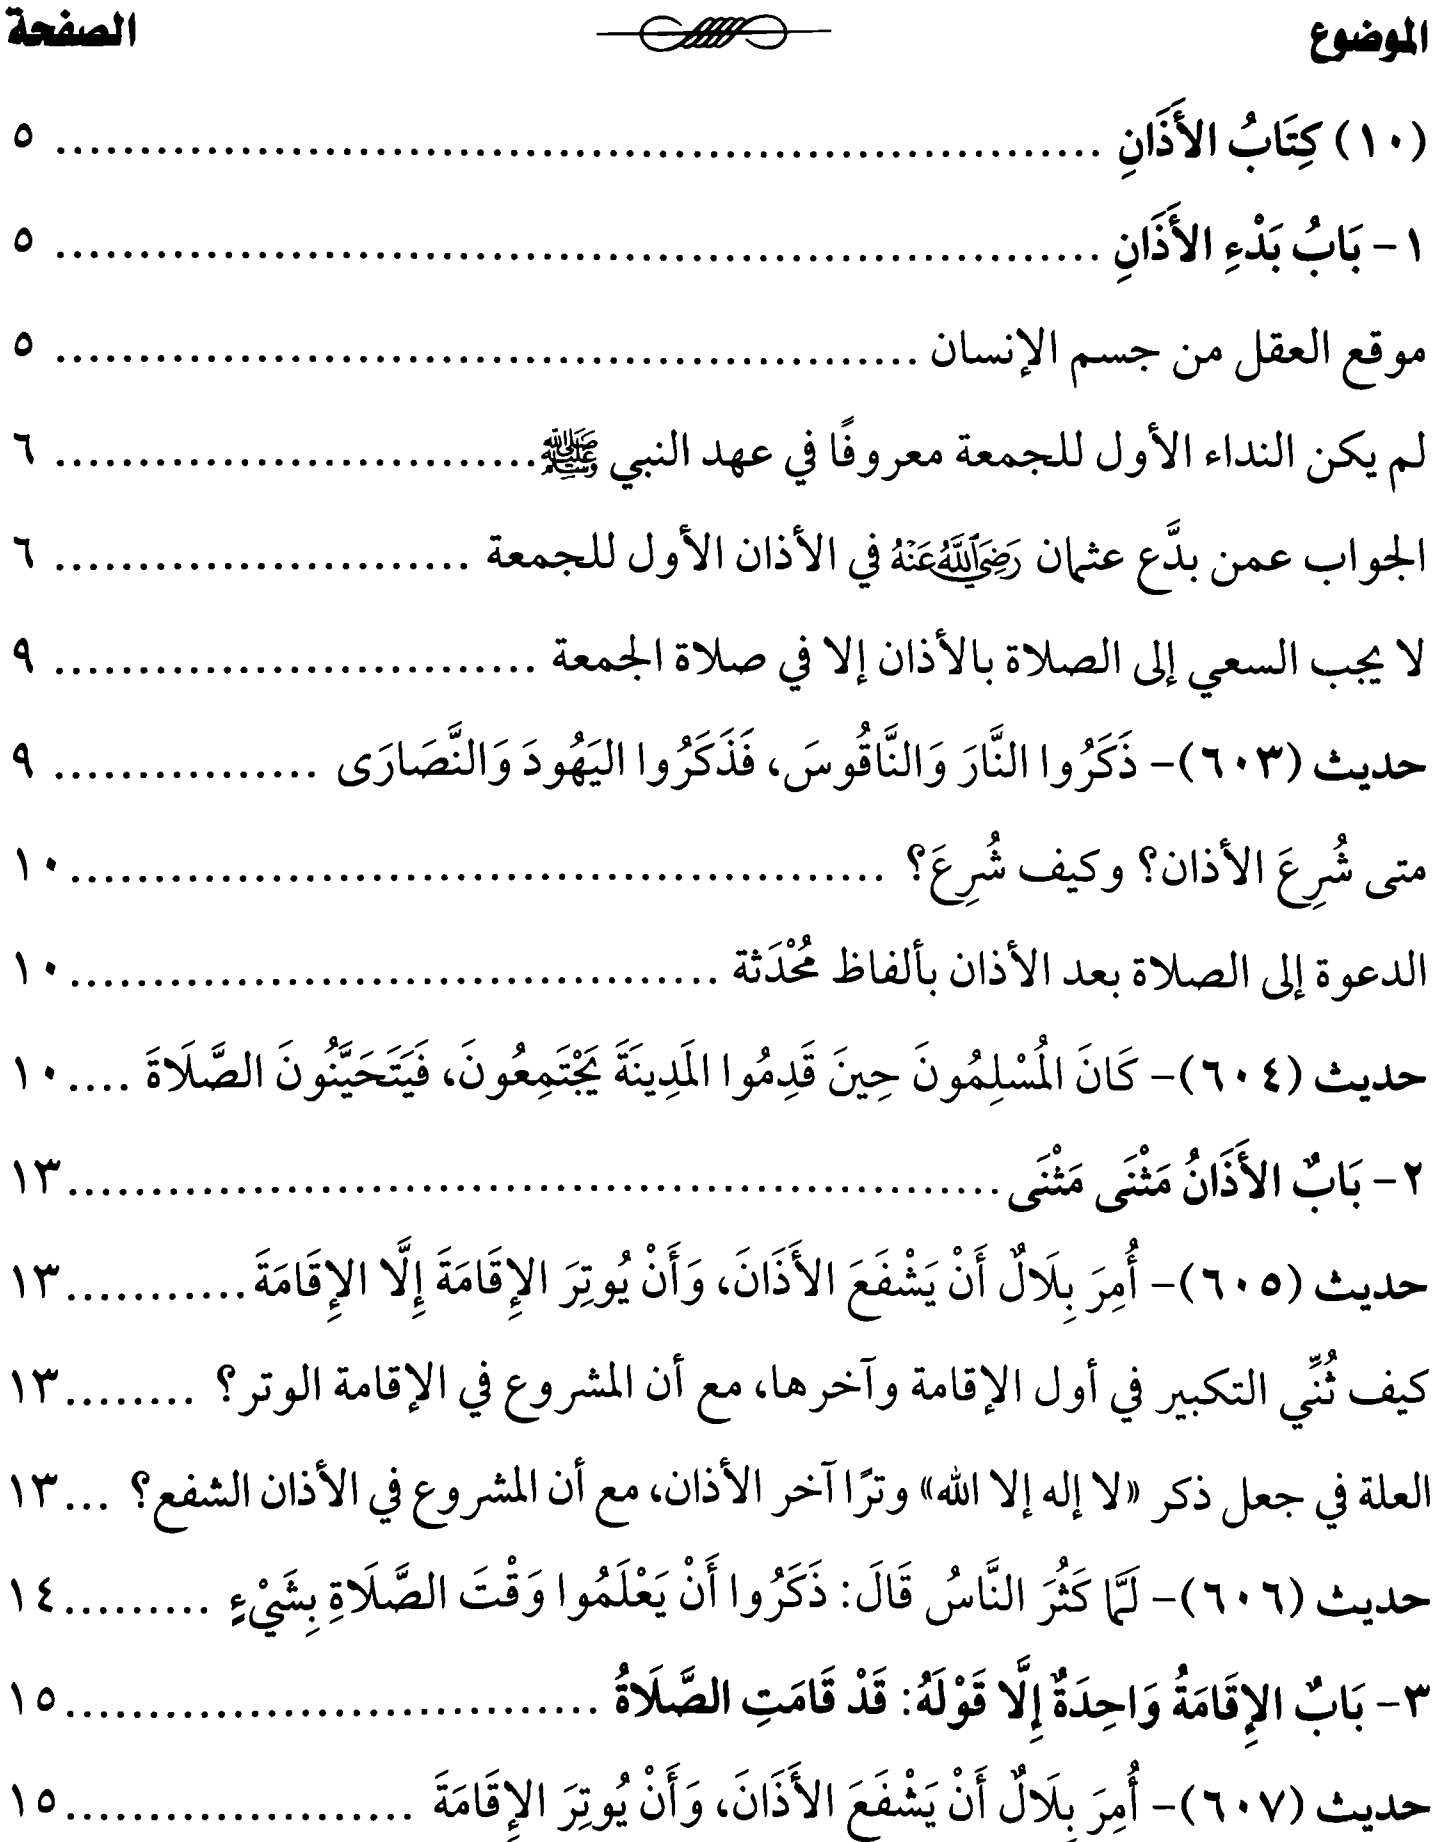 الموضوع الصفحة
(١٠) كِتَابُ الأَذَانِ ................................................................ ٥
١- بَابُ بَدْءِ الأَذَانِ ................................................................ ٥
موقع العقل من جسم الإنسان ..................................................... ٥
لم يكن النداء الأول للجمعة معروفًا في عهد النبي ﷺ.............................. ٦
الجواب عمن بدَّع عثمان رَضِيَاللَّهُعَنْهُ في الأذان الأول للجمعة .......................... ٦
لا يجب السعي إلى الصلاة بالأذان إلا في صلاة الجمعة .............................. ٩
حديث (٦٠٣)- ذَكَرُوا النَّارَ وَالنَّاقُوسَ، فَذَكَرُوا اليَهُودَ وَالنَّصَارَى ................. ٩
متى شُرِعَ الأذان؟ وكيف شُرِعَ؟ .................................................. ١٠
الدعوة إلى الصلاة بعد الأذان بألفاظ مُحْدَثة ........................................ ١٠
حديث (٦٠٤)- كَانَ المُسْلِمُونَ حِينَ قَدِمُوا المَدِينَةَ يَجْتَمِعُونَ، فَيَتَحَيَّنُونَ الصَّلَاةَ .... ١٠
٢- بَابٌ الأَذَانُ مَثْنَى مَثْنَى......................................................... ١٣
حديث (٦٠٥)- أُمِرَ بِلَالٌ أَنْ يَشْفَعَ الأَذَانَ، وَأَنْ يُوتِرَ الإِقَامَةَ إِلَّا الإِقَامَةَ........... ١٣
كيف ثُنِّي التكبير في أول الإقامة وآخرها، مع أن المشروع في الإقامة الوتر؟ ........ ١٣
العلة في جعل ذكر «لا إله إلا الله» وترًا آخر الأذان، مع أن المشروع في الأذان الشفع؟ ... ١٣
حديث (٦٠٦)- لَمَّا كَثُرَ النَّاسُ قَالَ: ذَكَرُوا أَنْ يَعْلَمُوا وَقْتَ الصَّلَاةِ بِشَيْءٍ ......... ١٤
٣- بَابٌ الإِقَامَةُ وَاحِدَةٌ إِلَّا قَوْلَهُ: قَدْ قَامَتِ الصَّلَاةُ ................................. ١٥
حديث (٦٠٧)- أُمِرَ بِلَالٌ أَنْ يَشْفَعَ الأَذَانَ، وَأَنْ يُوتِرَ الإِقَامَةَ ...................... ١٥